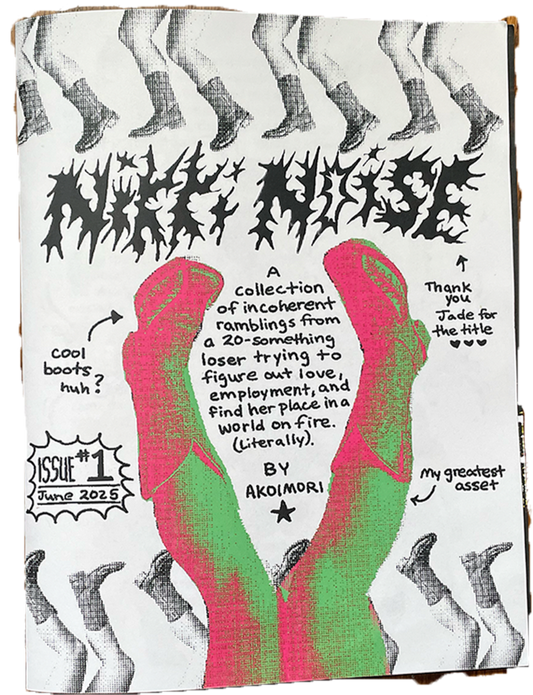 NIKKI NOISE
A
collection
of incoherent
ramblings from
a 20-something
loser trying to
figure out love,
employment, and
find her place in a
world on fire.
(Literally).
BY
AKOIMORI
Thank
you
Jade for
the title
cool
boots,
huh?
ISSUE #1
June 2025
My greatest
asset